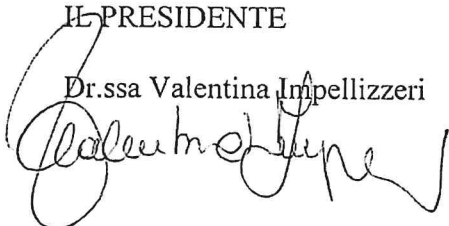 IL PRESIDENTE
Dr.ssa Valentina Impellizzeri